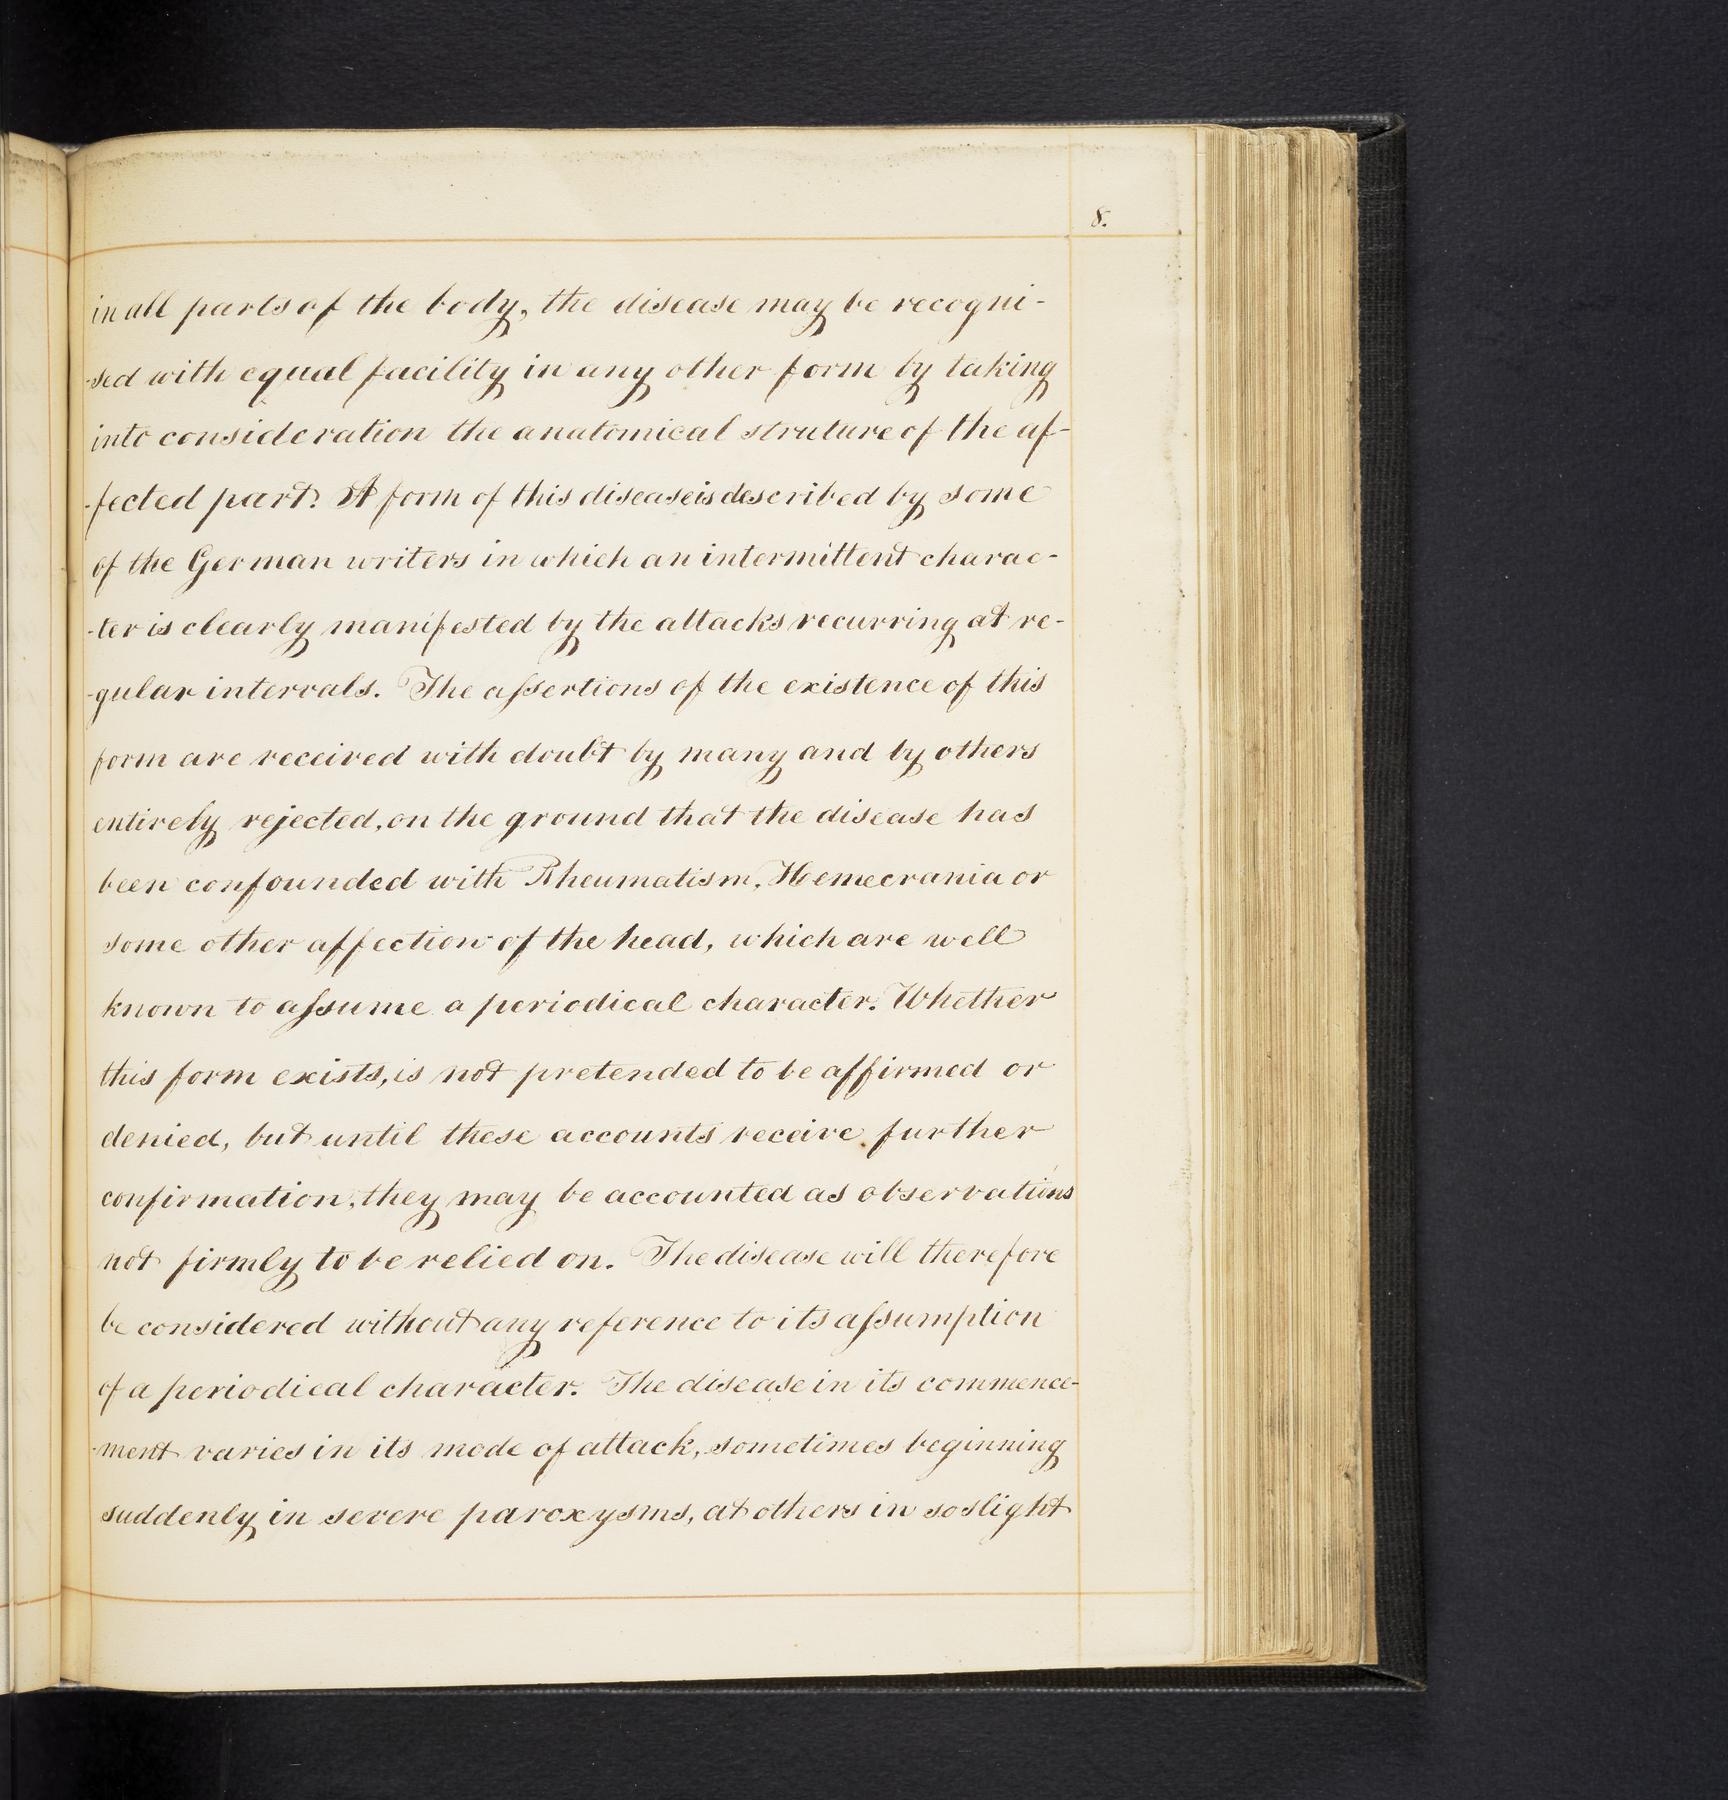 8.
in all parts of the body, the disease may be recogni-
-sed with equal facility in any other form by taking
into consideration the anatomical struture of the af-
-fected part. A form of this disease is described by some
of the German writers in which an intermittent charac-
-ter is clearly manifested by the attacks recurring at re-
-gular intervals. The assertions of the existence of this
form are received with doubt by many and by others
entirely rejected, on the ground that the disease has
been confounded with Rheumatism, Hemecrania or
some other affection of the head, which are well
known to assume a periodical character. Whether
this form exists, is not pretended to be affirmed or
denied, but until these accounts receive further
confirmation, they may be accounted as observations
not firmly to be relied on. The disease will therefore
be considered without any reference to its assumption
of a periodical character. The disease in its commence-
-ment varies in its mode of attack, sometimes beginning
suddenly in severe paroxysms, at others in so slight